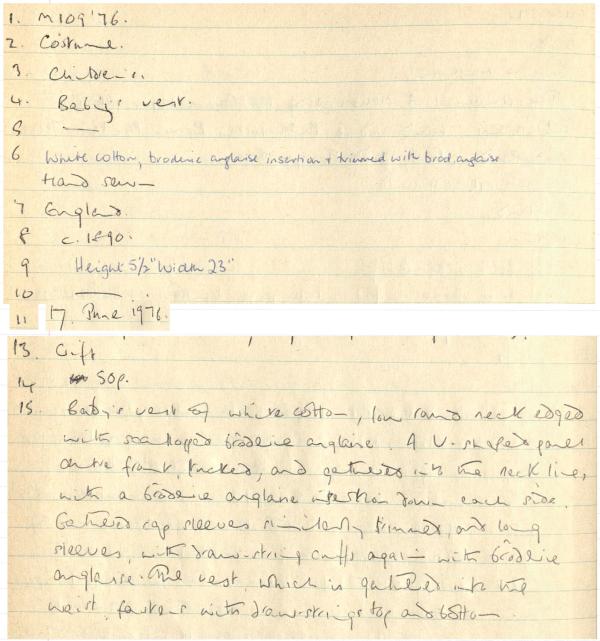 1. M109'76.
2. Costume.
3. Children's.
4. Baby's vest.
5 —
6 White cotton, broderie anglaise insertion + trimmed with brod. anglaise
Hand sewn
7 England.
8 c. 1890.
9 Height 5½" Width 23"
10 —
11 17. June 1976.
13. Gift
14 50p.
15. Baby's vest of white cotton, low round neck edged
with scalloped broderie anglaise. A U-shaped panel
centre front, tucked, and gathered into the neck line,
with a broderie anglaise insertion down each side.
Gathered cap sleeves similarly trimmed, and long
sleeves, with draw-string cuffs again with broderie
anglaise. The vest, which is gathered into the
waist, fastens with draw-strings top and bottom.